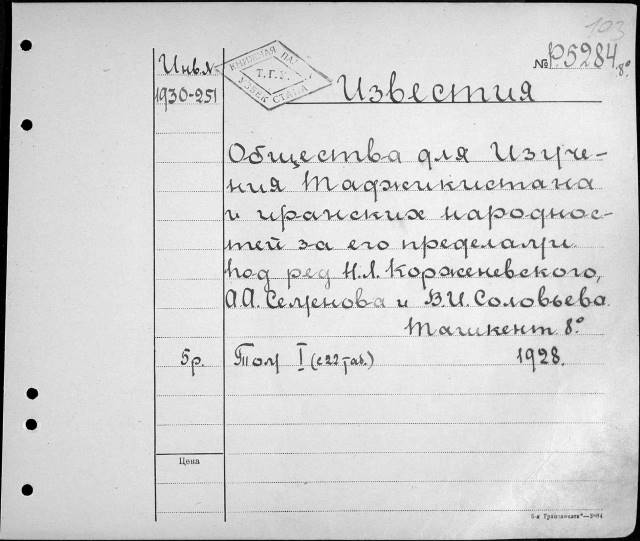 103
Инв. №
1930-251
КНИЖНАЯ ПАЛ
Т.Г.У.
УЗБЕКСТАНА
№ Р.5284 8°
Известия
Общества для Изуче-
ния Таджикистана
и иранских народнос-
тей за его пределами.
Под ред Н.Л. Корженевского,
А.А. Семенова и В.И. Соловьева.
Ташкент 8°
5р.
Том I (с 22 таб.) 1928.
Цена